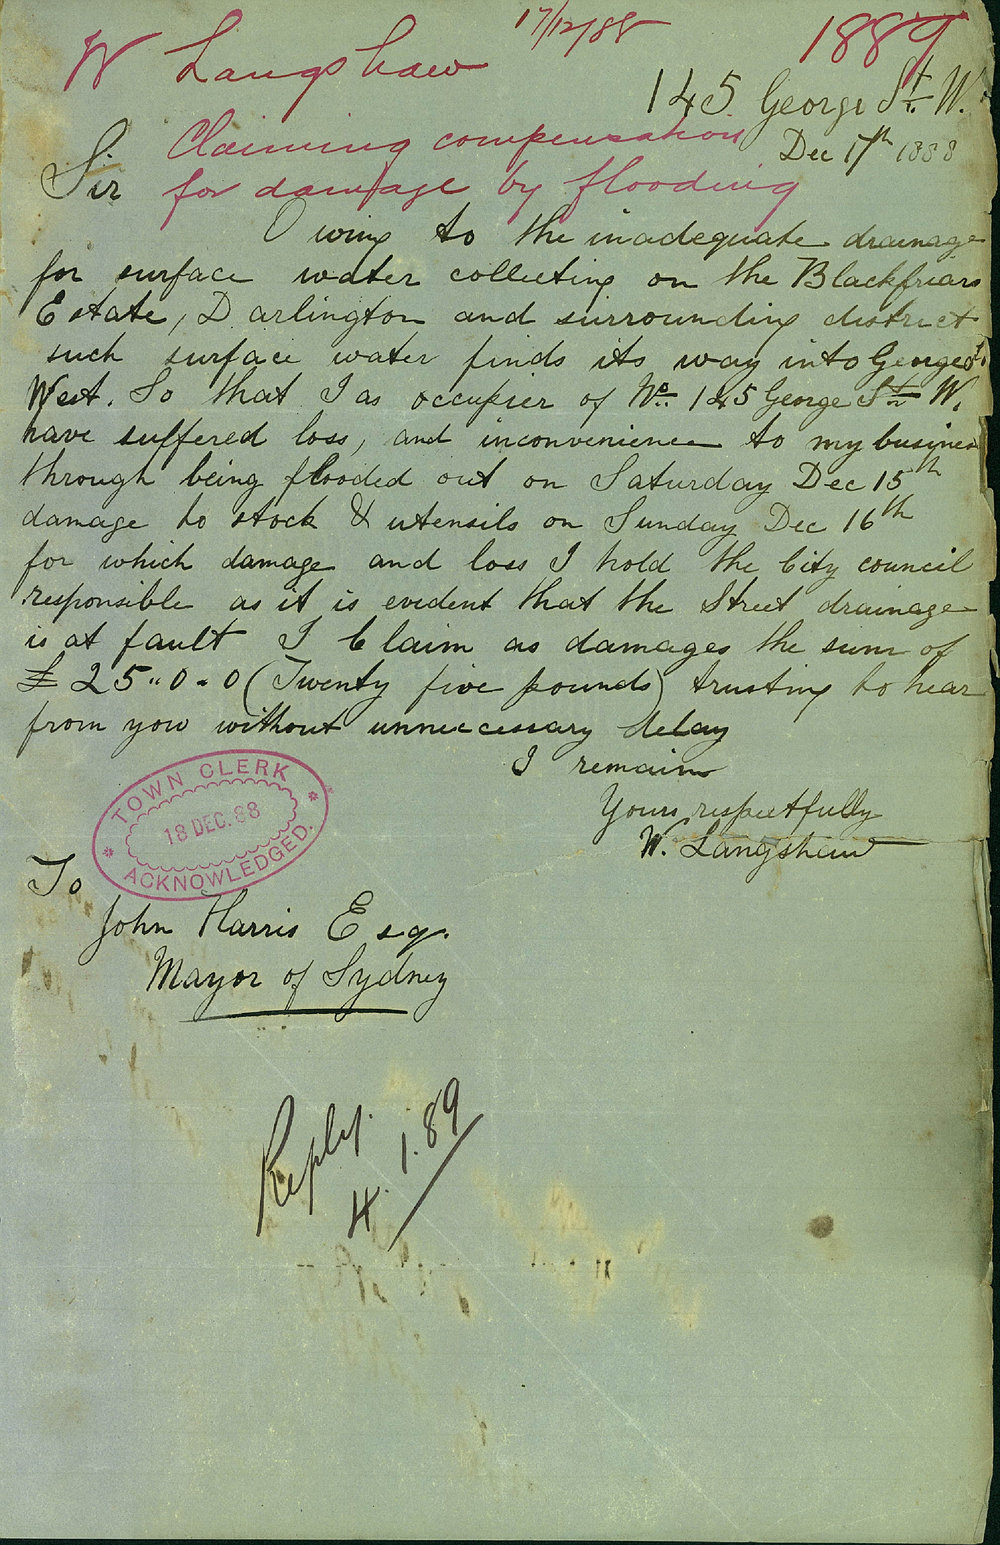 17/12/88
1889
W Langshaw
145 George St. W.
Claiming compensation
Dec 17th 1888
Sir
for damage by flooding
Owing to the inadequate drainage
for surface water collecting on the Blackfriars
Estate, Darlington and surrounding district
such surface water finds its way into George St.
West. So that I as occupier of No. 145 George St. W.
have suffered loss, and inconvenience to my business
through being flooded out on Saturday Dec 15th
damage to stock & utensils on Sunday Dec 16th
for which damage and loss I hold the City council
responsible as it is evident that the Street drainage
is at fault I Claim as damages the sum of
£25"0"0 (Twenty five pounds) trusting to hear
from you without unneccessary delay
I remain
Yours respectfully
W. Langshaw
TOWN CLERK
18 DEC. 88
ACKNOWLEDGED.
To
John Harris Esq.
Mayor of Sydney
Reply.
4.1.89